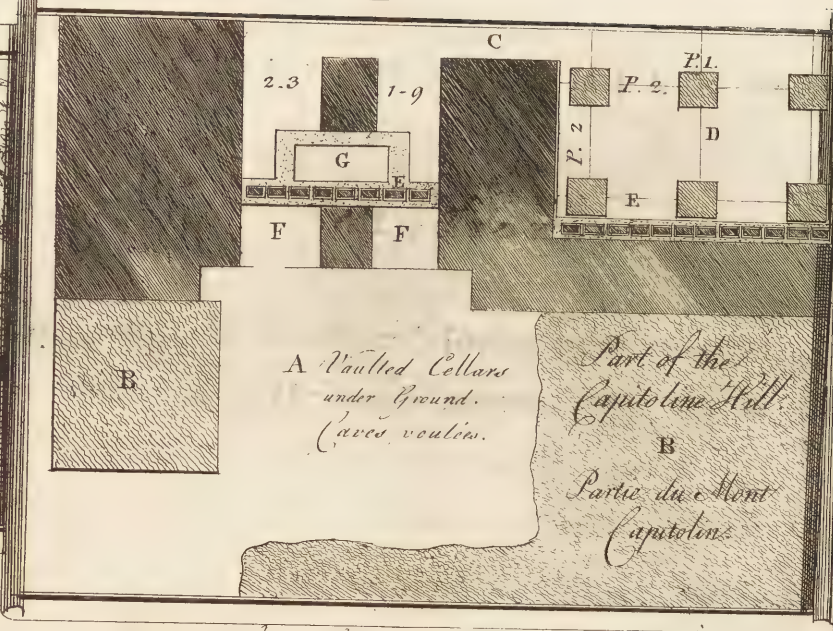 C
2.3
1-9
P. 1.
P. 2.
D
P. 2
G
E
E
F
F
B
A Vaulted Cellars
under Ground.
Caves voutées.
Part of the
Capitoline Hill.
B
Partie du Mont
Capitolin.